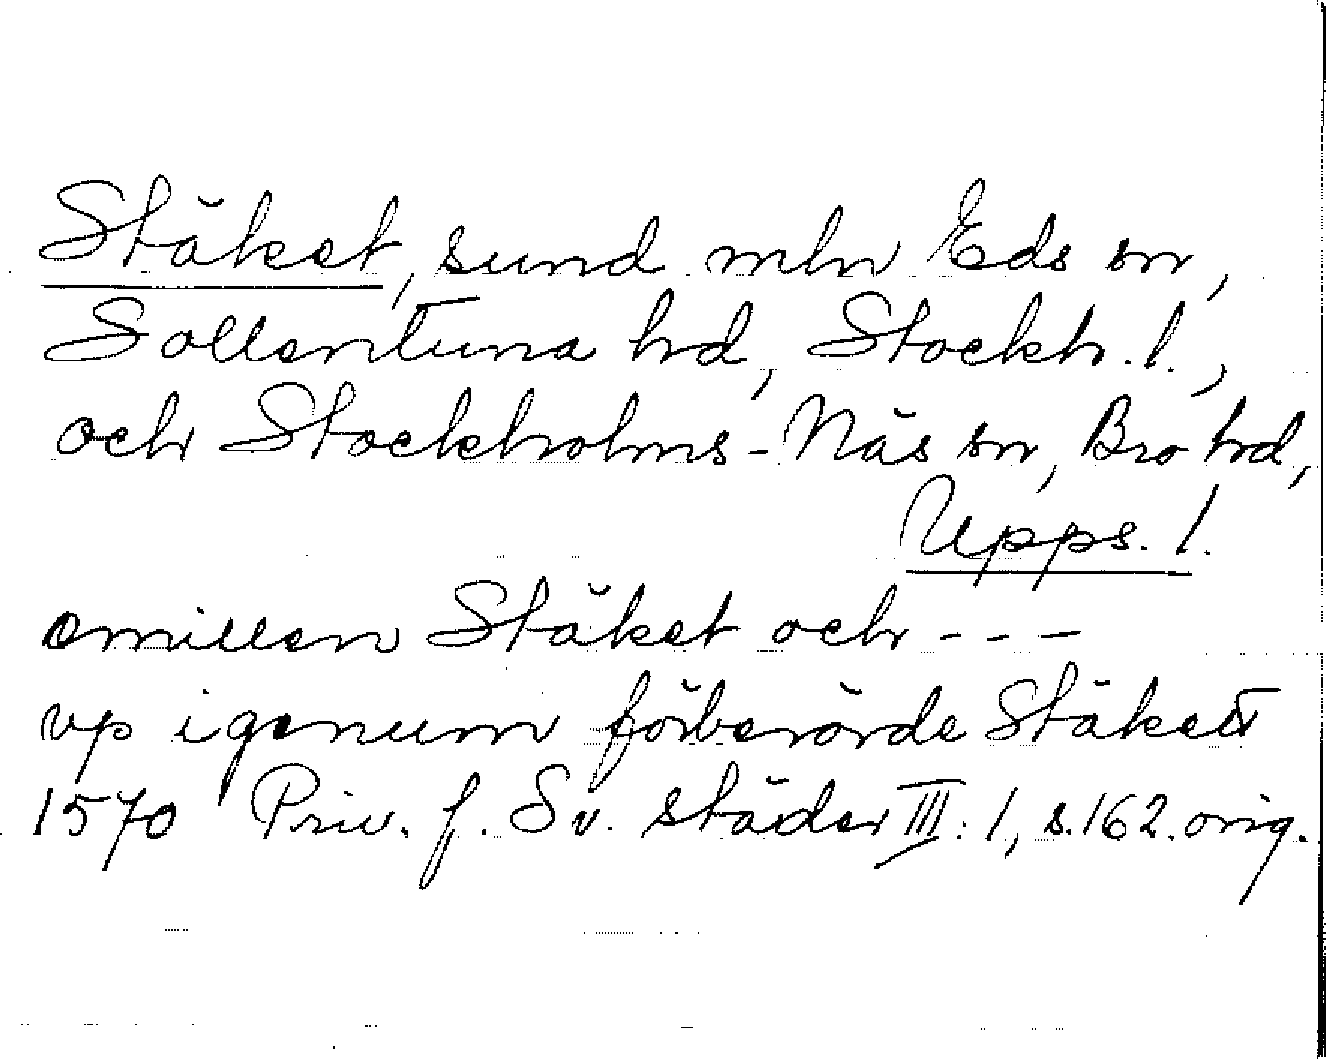 Stäket, sund mln Eds sn,
Sollentuna hd, Stockh. l.,
och Stockholms-Näs sn, Bro hd,
Upps. l.
emillen Stäket och - - -
vp igenum förberörde Stäkett
1570 Priv. f. Sv. städer III: 1, s. 162. orig.